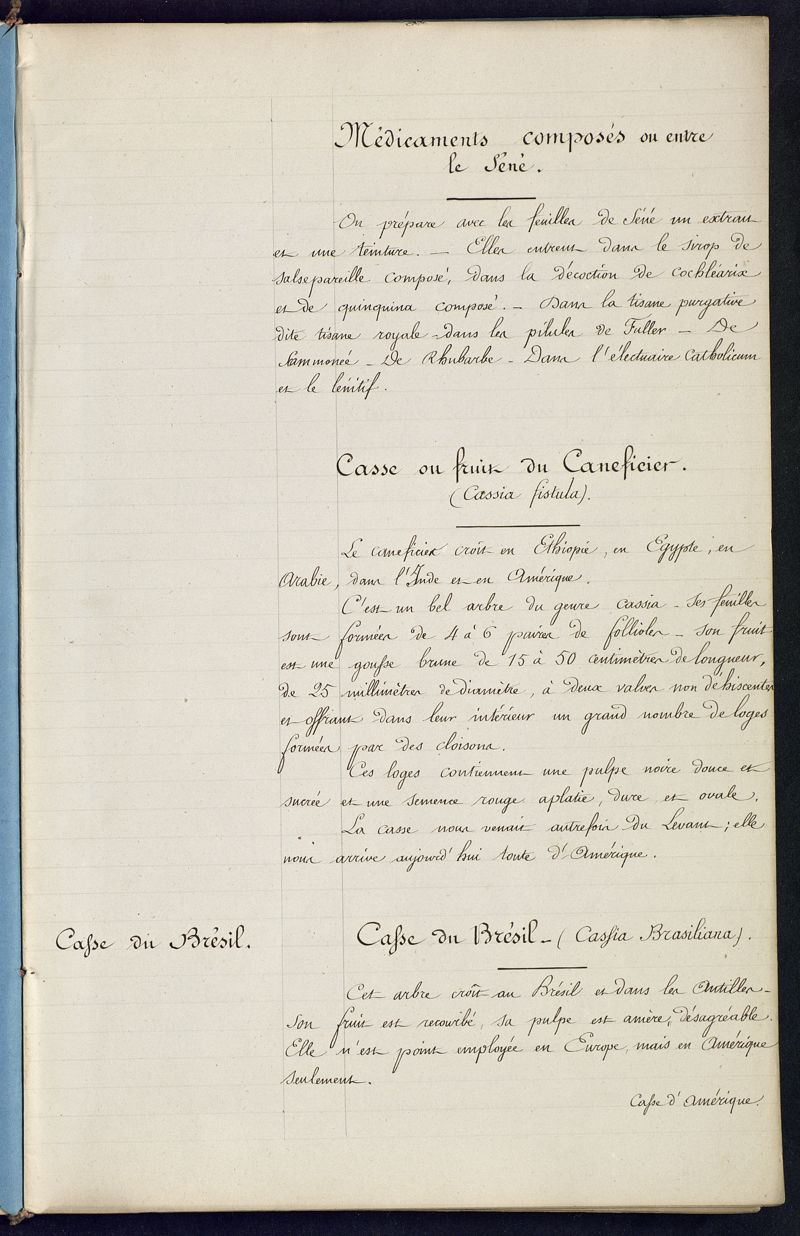 Médicaments composés ou entre
le Séné.
On prépare avec les feuilles de Séné un extrait
et une teinture. — Elles entrent dans le sirop de
salsepareille composé, dans la décoction de cochléaria
et de quinquina composé. — Dans la tisane purgative
dite tisane royale - dans les pilules de Fuller — De
Sammoneé - De Rhubarbe - Dans l'électuaire Catholicum
et le lénitif.
Casse ou fruit du Caneficier.
(Cassia fistula).
Le caneficier croît en Ethiopie, en Egypte, en
Arabie, dans l'Inde et en Amérique.
C'est un bel arbre du genre cassia - ses feuilles
sont formées de 4 à 6 paires de follioles - son fruit
est une gousse brune de 15 à 50 centimètres de longueur,
de 25 millimètres de diamètre, à deux valves non déhiscentes
et offrant dans leur intérieur un grand nombre de loges
formées par des cloisons.
Ces loges contiennent une pulpe noire douce et
sucrée et une semence rouge aplatie, dure et ovale.
La casse nous venait autrefois du Levant; elle
nous arrive aujourd'hui toute d'Amérique.
Casse du Brésil.
Casse du Brésil - (Cassia Brasiliana).
Cet arbre croît au Brésil et dans les Antilles -
Son fruit est recourbé, sa pulpe est amère, désagréable.
Elle n'est point employée en Europe, mais en Amérique
seulement.
Casse d'Amérique.